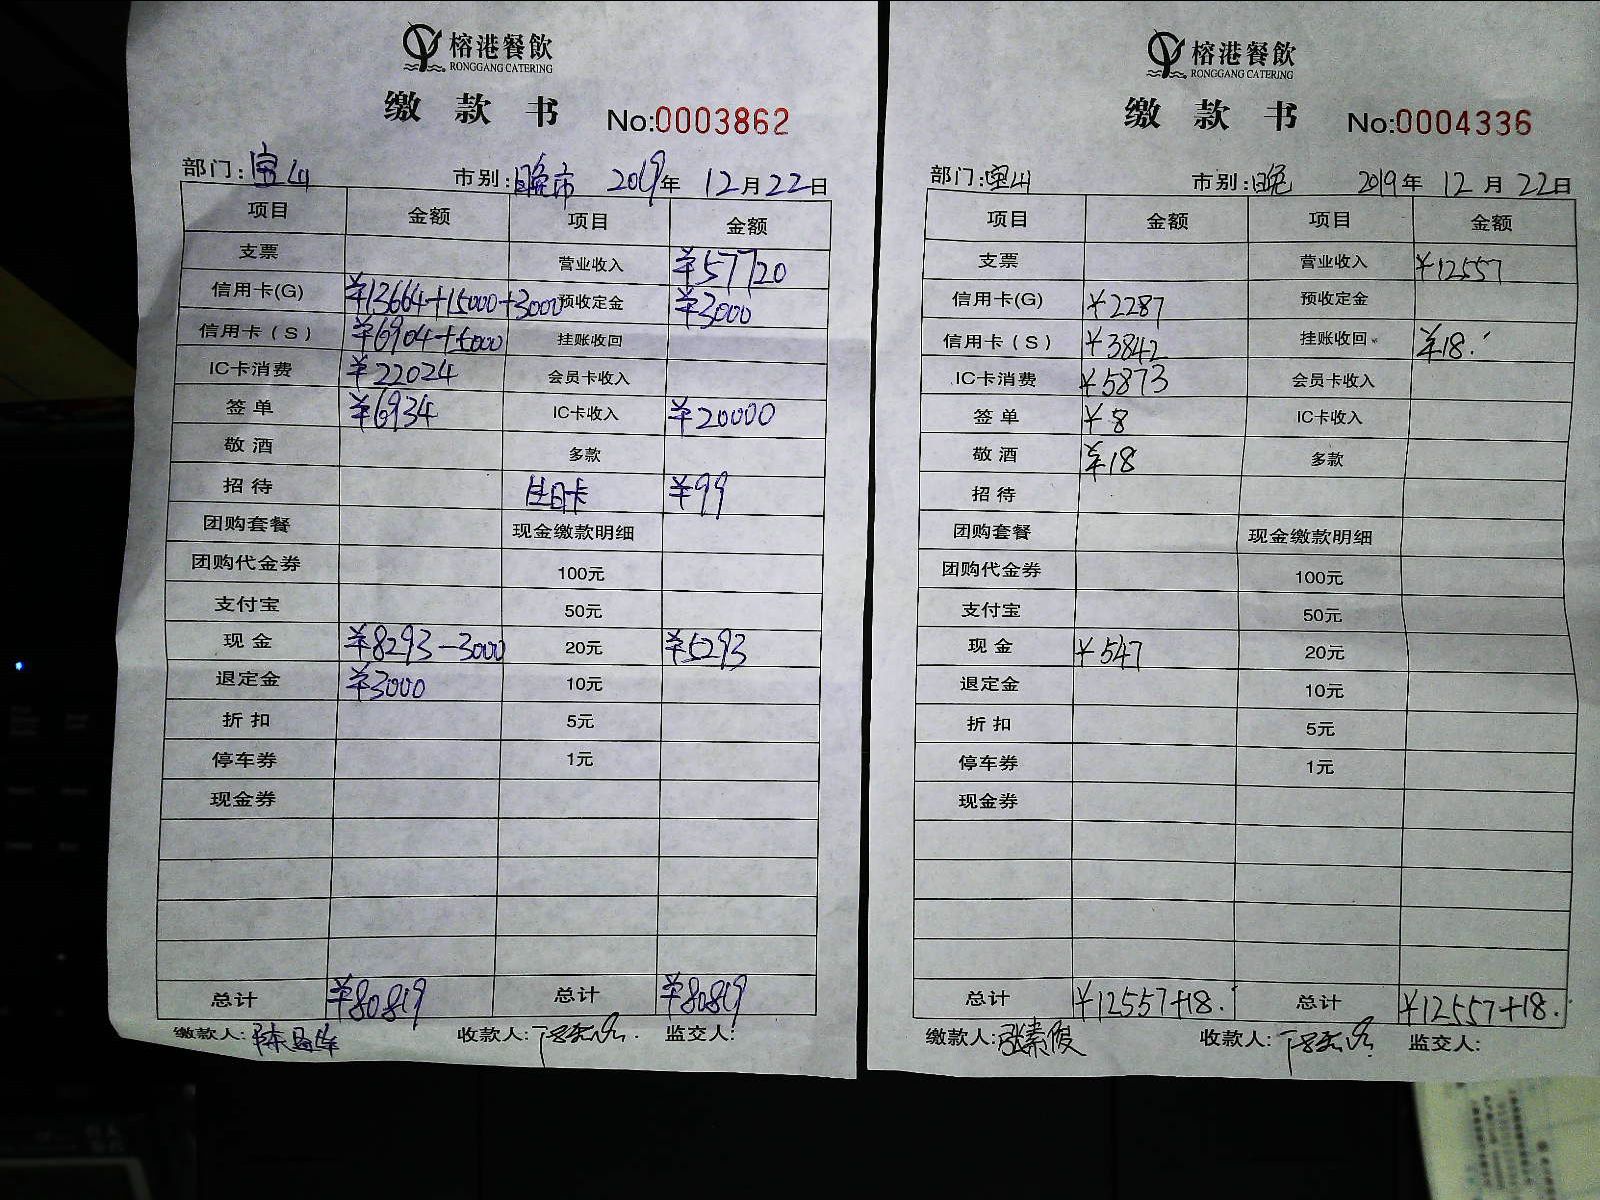 榕港餐飲
RONGGANG CATERING
缴 款 书 No:0003862
部门:宝山 市别:晚市 2019年 12月22日
项目 金额 项目 金额
支票 营业收入 ¥57720
信用卡(G) ¥13664+15000+3000 预收定金 ¥3000
信用卡(S) ¥6904+5000 挂账收回
IC卡消费 ¥22024 会员卡收入
签单 ¥6934 IC卡收入 ¥20000
敬酒 多款
招待 生日卡 ¥99
团购套餐 现金缴款明细
团购代金券 100元
支付宝 50元
现金 ¥8293-3000 20元 ¥5293
退定金 ¥3000 10元
折扣 5元
停车券 1元
现金券
总计 ¥80819 总计 ¥80819
缴款人: 收款人: 监交人:
榕港餐飲
RONGGANG CATERING
缴 款 书 No:0004336
部门:宝山 市别:晚 2019年 12月22日
项目 金额 项目 金额
支票 营业收入 ¥12557
信用卡(G) ¥2287 预收定金
信用卡(S) ¥3842 挂账收回 ¥18.
IC卡消费 ¥5873 会员卡收入
签单 ¥8 IC卡收入
敬酒 ¥18 多款
招待
团购套餐 现金缴款明细
团购代金券 100元
支付宝 50元
现金 ¥547 20元
退定金 10元
折扣 5元
停车券 1元
现金券
总计 ¥12557+18. 总计 ¥12557+18.
缴款人:张素俊 收款人: 监交人: